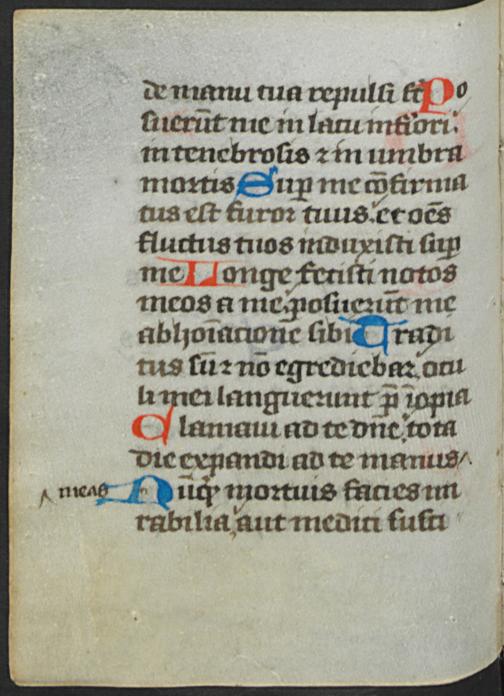 de manu tua repulsi st̄ Po
suerūt me in lacu inf̄iori:
in tenebrosis ⁊ in umbra
mortis Suꝑ me ꝯ̄firma
tus est furor tuus. et oēs
fluctus tuos induxisti suꝑ
me Longe fecisti notos
meos a me posuerūt me
abhoīacionē sibi Tradi
tus sū ⁊ nō egrediebar, ocu
li mei languerunt p̄ īopia
Clamaui ad te dn̄e, tota
die expandi ad te manus/.
meas Nūqͥ mortuis facies mi
rabilia, aut medici susci